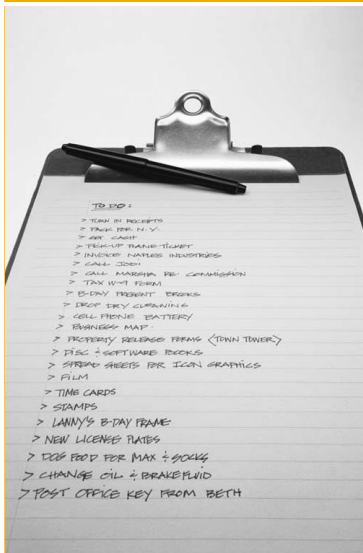 TO DO:
> TURN IN RECEIPTS
> PACK FOR N.Y.
> GET CASH
> PICK-UP PLANE TICKET
> INVOICE NAPLES INDUSTRIES
> CALL JODI
> CALL MARSHA RE: COMMISSION
> TAX W-9 FORM
> B-DAY PRESENT BROOKS
> DROP DRY CLEANING
> CELL PHONE BATTERY
> BUSINESS MAP
> PROPERTY RELEASE FORMS <TOWN TOWER>
> DISC & SOFTWARE BOOKS
> SPREAD SHEETS FOR ICON GRAPHICS
> FILM
> TIME CARDS
> STAMPS
> LANNY'S B-DAY FRAME
> NEW LICENSE PLATES
> DOG FOOD FOR MAX & SOCKS
> CHANGE OIL & BRAKE FLUID
> POST OFFICE KEY FROM BETH